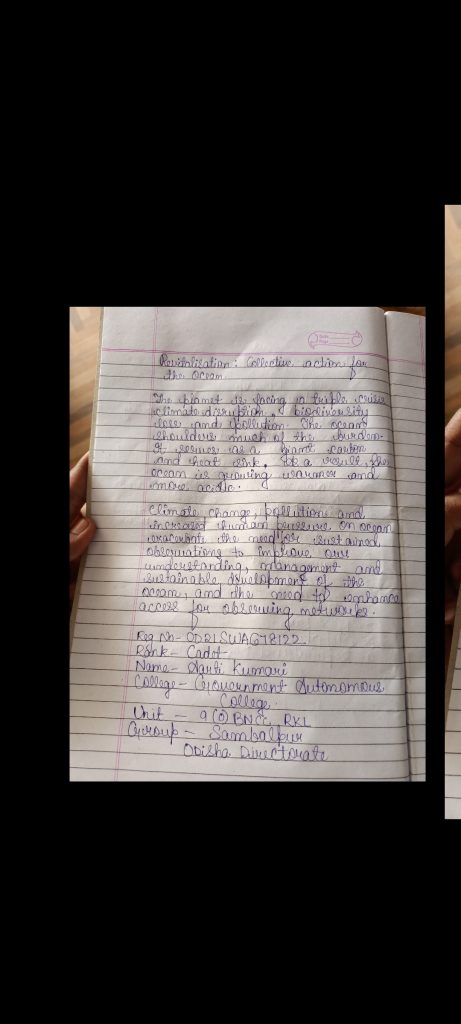 Revitalisation: Collective action for
the Ocean.
The planet is facing a triple crisis
climate disruption, biodiversity
loss and pollution. The ocean
shoulders much of the burden.
It serves as a giant carbon
and heat sink. As a result, the
ocean is growing warmer and
more acidic.
Climate change, pollutions and
increased human pressure on ocean
exacerbate the need for sustained
observations to improve our
understanding, management and
sustainable development of the
ocean, and the need to enhance
access for observing networks.
Reg No- OD21SWAG78122
Rank- Cadet
Name- Aarti Kumari
College- Government Autonomous
College.
Unit - 9 (O) BNCC, RKL
Group - Sambalpur
Odisha Directorate